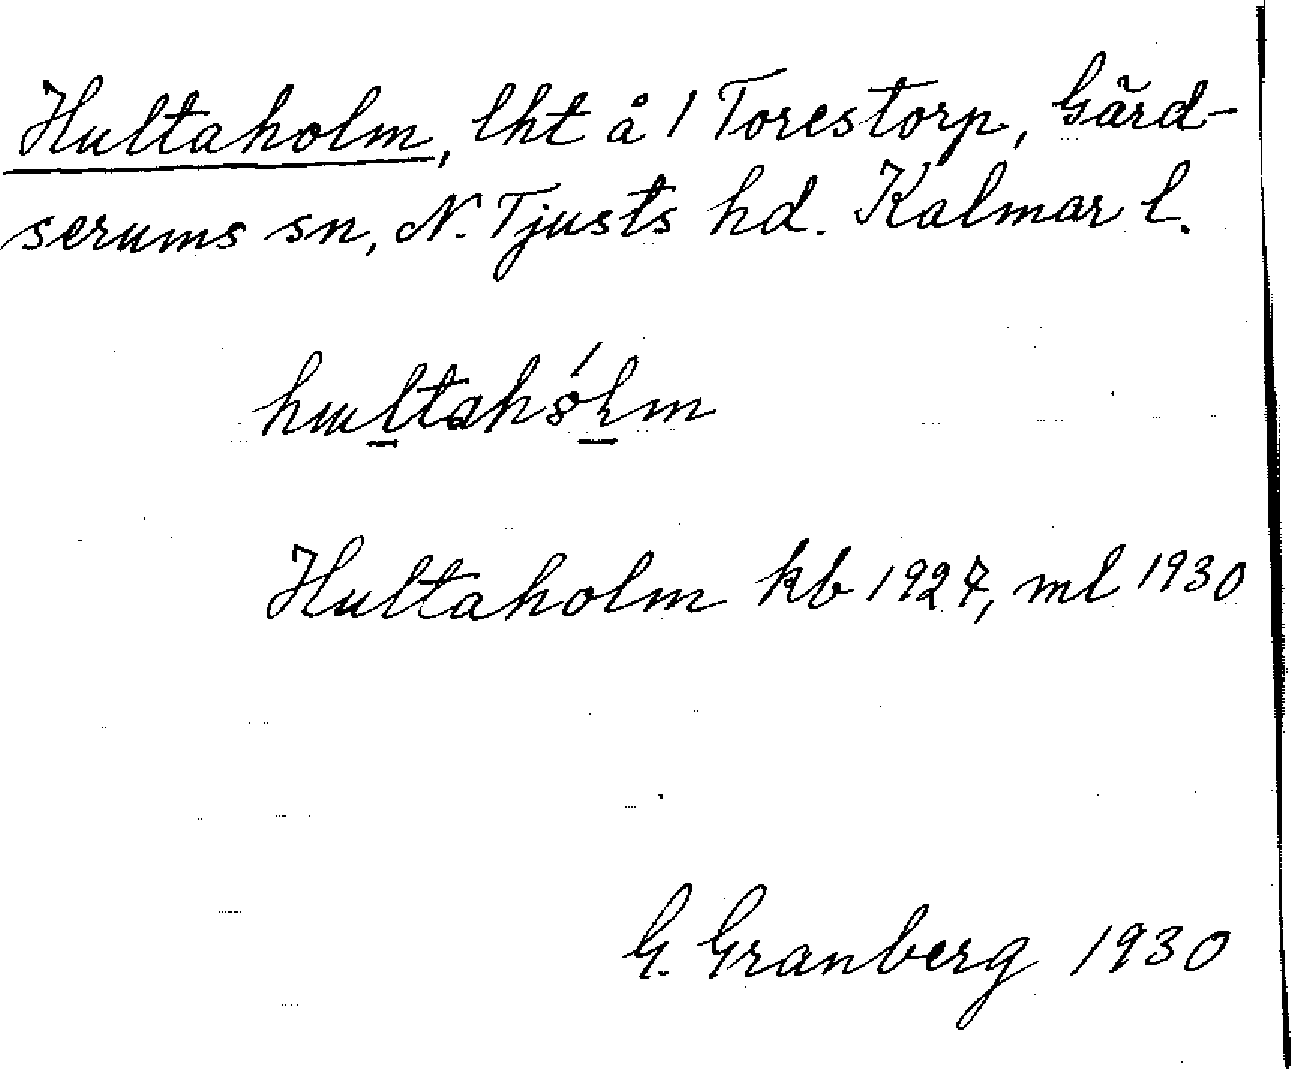 Hultaholm, lht å 1 Torestorp, Gärd-
serums sn, N. Tjusts hd. Kalmar l.
Hultaholm kb 1927, ml 1930
G. Granberg 1930